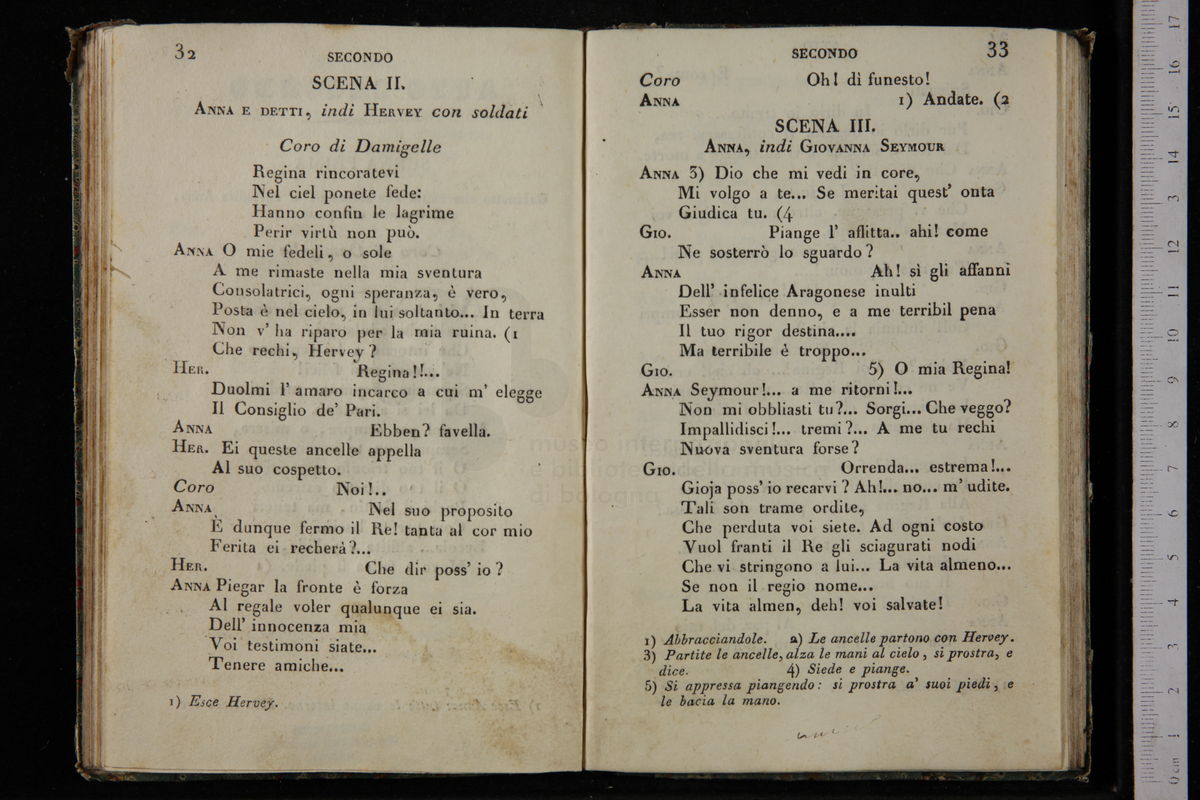 32
SECONDO
SCENA II.
ANNA E DETTI, indi HERVEY con soldati
Coro di Damigelle
Regina rincoratevi
Nel ciel ponete fede:
Hanno confin le lagrime
Perir virtù non può.
ANNA O mie fedeli, o sole
A me rimaste nella mia sventura
Consolatrici, ogni speranza, è vero,
Posta è nel cielo, in lui soltanto... In terra
Non v' ha riparo per la mia ruina. (1
Che rechi, Hervey?
HER. Regina!!...
Duolmi l' amaro incarco a cui m' elegge
Il Consiglio de' Pari.
ANNA Ebben? favella.
HER. Ei queste ancelle appella
Al suo cospetto.
Coro Noi!..
ANNA Nel suo proposito
È dunque fermo il Re! tanta al cor mio
Ferita ei recherà?...
HER. Che dir poss' io?
ANNA Piegar la fronte è forza
Al regale voler qualunque ei sia.
Dell' innocenza mia
Voi testimoni siate...
Tenere amiche...
1) Esce Hervey.
SECONDO
33
Coro Oh! dì funesto!
ANNA 1) Andate. (2
SCENA III.
ANNA, indi GIOVANNA SEYMOUR
ANNA 3) Dio che mi vedi in core,
Mi volgo a te... Se meritai quest' onta
Giudica tu. (4
GIO. Piange l' aflitta.. ahi! come
Ne sosterrò lo sguardo?
ANNA Ah! sì gli affanni
Dell' infelice Aragonese inulti
Esser non denno, e a me terribil pena
Il tuo rigor destina....
Ma terribile è troppo...
GIO. 5) O mia Regina!
ANNA Seymour!... a me ritorni!...
Non mi obbliasti tu?... Sorgi... Che veggo?
Impallidisci!... tremi?... A me tu rechi
Nuova sventura forse?
GIO. Orrenda... estrema!...
Gioja poss' io recarvi? Ah!... no... m' udite.
Tali son trame ordite,
Che perduta voi siete. Ad ogni costo
Vuol franti il Re gli sciagurati nodi
Che vi stringono a lui... La vita almeno...
Se non il regio nome...
La vita almen, deh! voi salvate!
1) Abbracciandole. 2) Le ancelle partono con Hervey.
3) Partite le ancelle, alza le mani al cielo, si prostra, e
dice. 4) Siede e piange.
5) Si appressa piangendo: si prostra a' suoi piedi, e
le bacia la mano.
museo internazionale
e biblioteca della musica
di bologna
0 cm 1 2 3 4 5 6 7 8 9 10 11 12 13 14 15 16 17